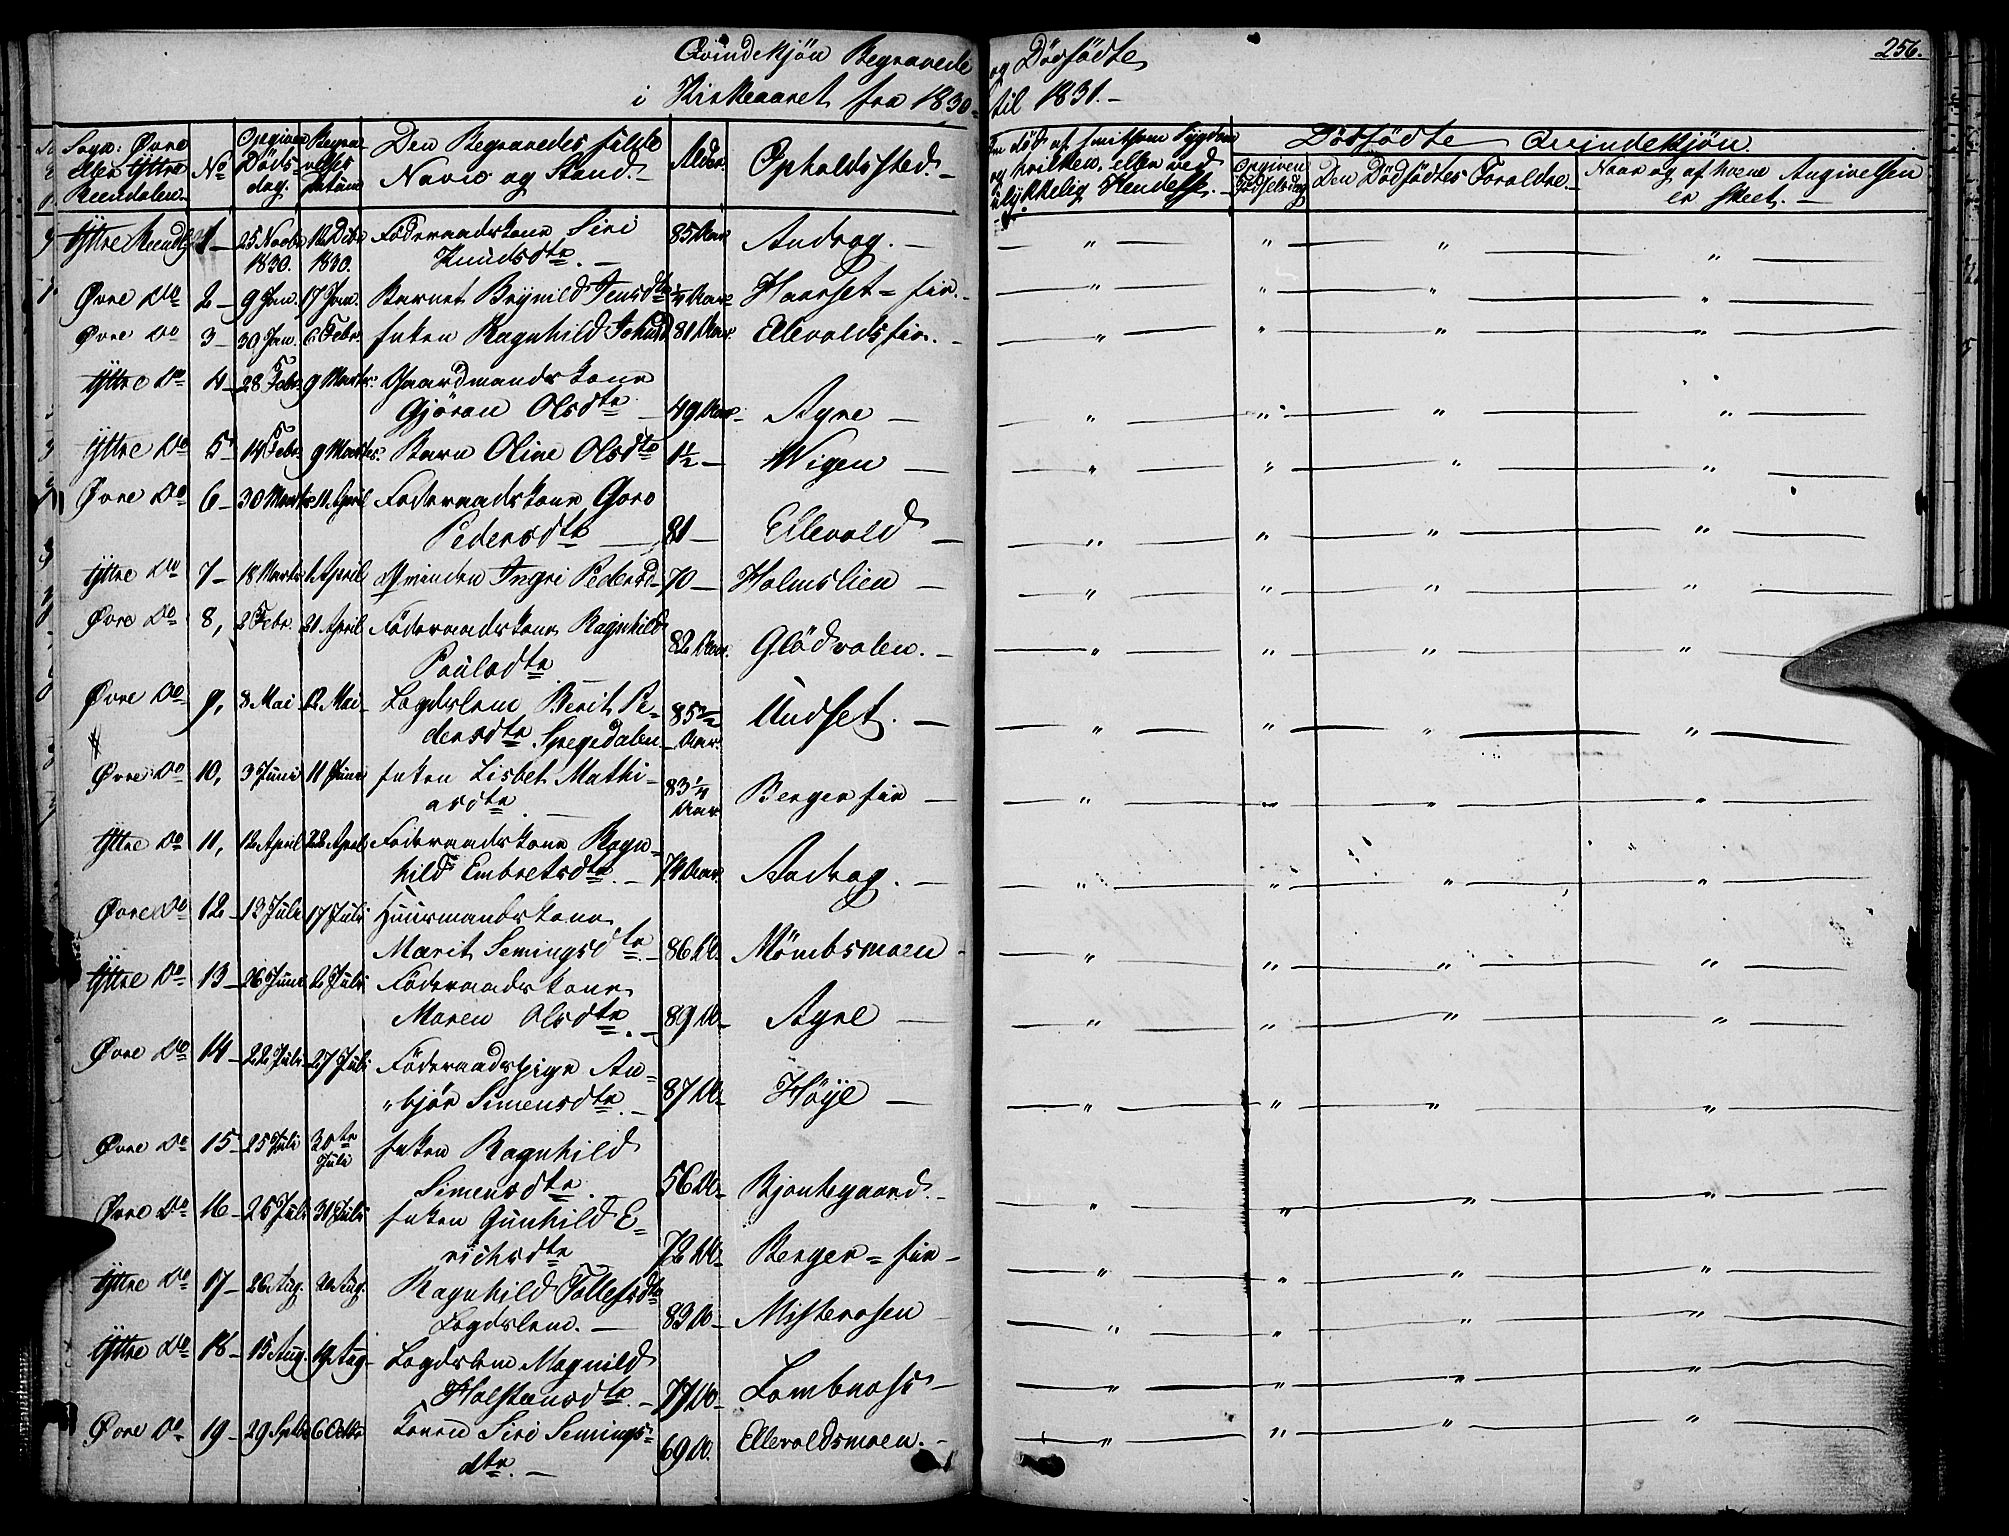 Qvindekjön Begravede og Dödfödte
i Kirkeaaret fra 1830 til 1831.
256.
Sogn: Övre eller Yttre Reendalen. No Opgiven Döds-dag. Begra-velses Datum Den Begravedes fulde Navn og Stand. Alder. Opholdssted.
Om död af smitsom Sygdom og hvilken, eller ved ulykkelig Hendelse.
Dödfödte Qvindekjön
Opgiven Födselsdag Den Dödfödtes Forældre. Naar og af hvem Angivelsen er skeet.
Yttre Reendl 1 25 Novbr 1830. 12 Dcbr 1830. Föderaadskone Siri
Knudsdtr. 85 Aar Andrag.
Övre Do 2 9 Jan. 17 Jan. Barnet Brynild Jensdtr ¼ Aar Haarset-eie.
Övre Do 3 30 Jan. 6 Febr. Enken Ragnhild Johnsd 81 Aar. Ellevoldseie.
Yttre Do 4 28 Febr. 9 Marts. Gaardmandskone
Gjöran Olsdtr 49 Aar Agre
Yttre Do 5 14 Febr. 9 Marts. Barn Oline Olsdtr 1½ Wigen
Övre Do 6 30 Marts 11 April Föderaadskone Goro
Pedersdtr 81 Ellevold
Yttre Do 7 18 Marts 1 April Qvinden Ingri Pedersd 70 Holmslien
Övre Do 8, 2 Febr. 21 April Föderaadskone Ragnhild
Poulsdtr 82 Aar. Glödvolen.
Övre Do 9, 8 Mai 12 Mai Legdslem Berit Pe-
dersdtr. Spegedalen 85 Aar. Undset.
Övre Do 10, 3 Juni 11 Juni Enken Lisbet Mathi-
asdtr 83¼ Aar Berger eie
Yttre Do 11, 12 April 22 April Föderaadskone Ragn-
hild Embretsdtr. 74 Aar. Andrag.
Övre Do 12 13 Juli 17 Juli Huusmandskone
Marit Semingsdtr 86 Do. Mömbsmoen
Yttre Do 13 26 Juni 2 Juli Föderaadskone
Maren Olsdtr. 89 Do Agre
Övre Do 14 22 Juli 27 Juli Föderaadspige An-
björ Simensdtr. 87 Do Höye
Övre Do 15 25 Juli 30te Juli Enken Ragnhild
Simensdtr. 56 Do Bjontegaard.
Övre Do 16 26 Juli 31 Juli Enken Gunhild E-
richsdtr 72 Do Berger-eie
Yttre Do 17 20 Aug. Aug. Ragnhild Tollefsdtr
Legdslem. 83 Do Misterosen
Yttre Do 18 15 Aug. 19 Aug Legdslem Magnild
Holstensdtr. 77 Do Lombnæs
Övre Do 19 29 Septbr 6 Octbr Konen Siri Semings-
dtr. 69 Do. Ellevoldsmoen.